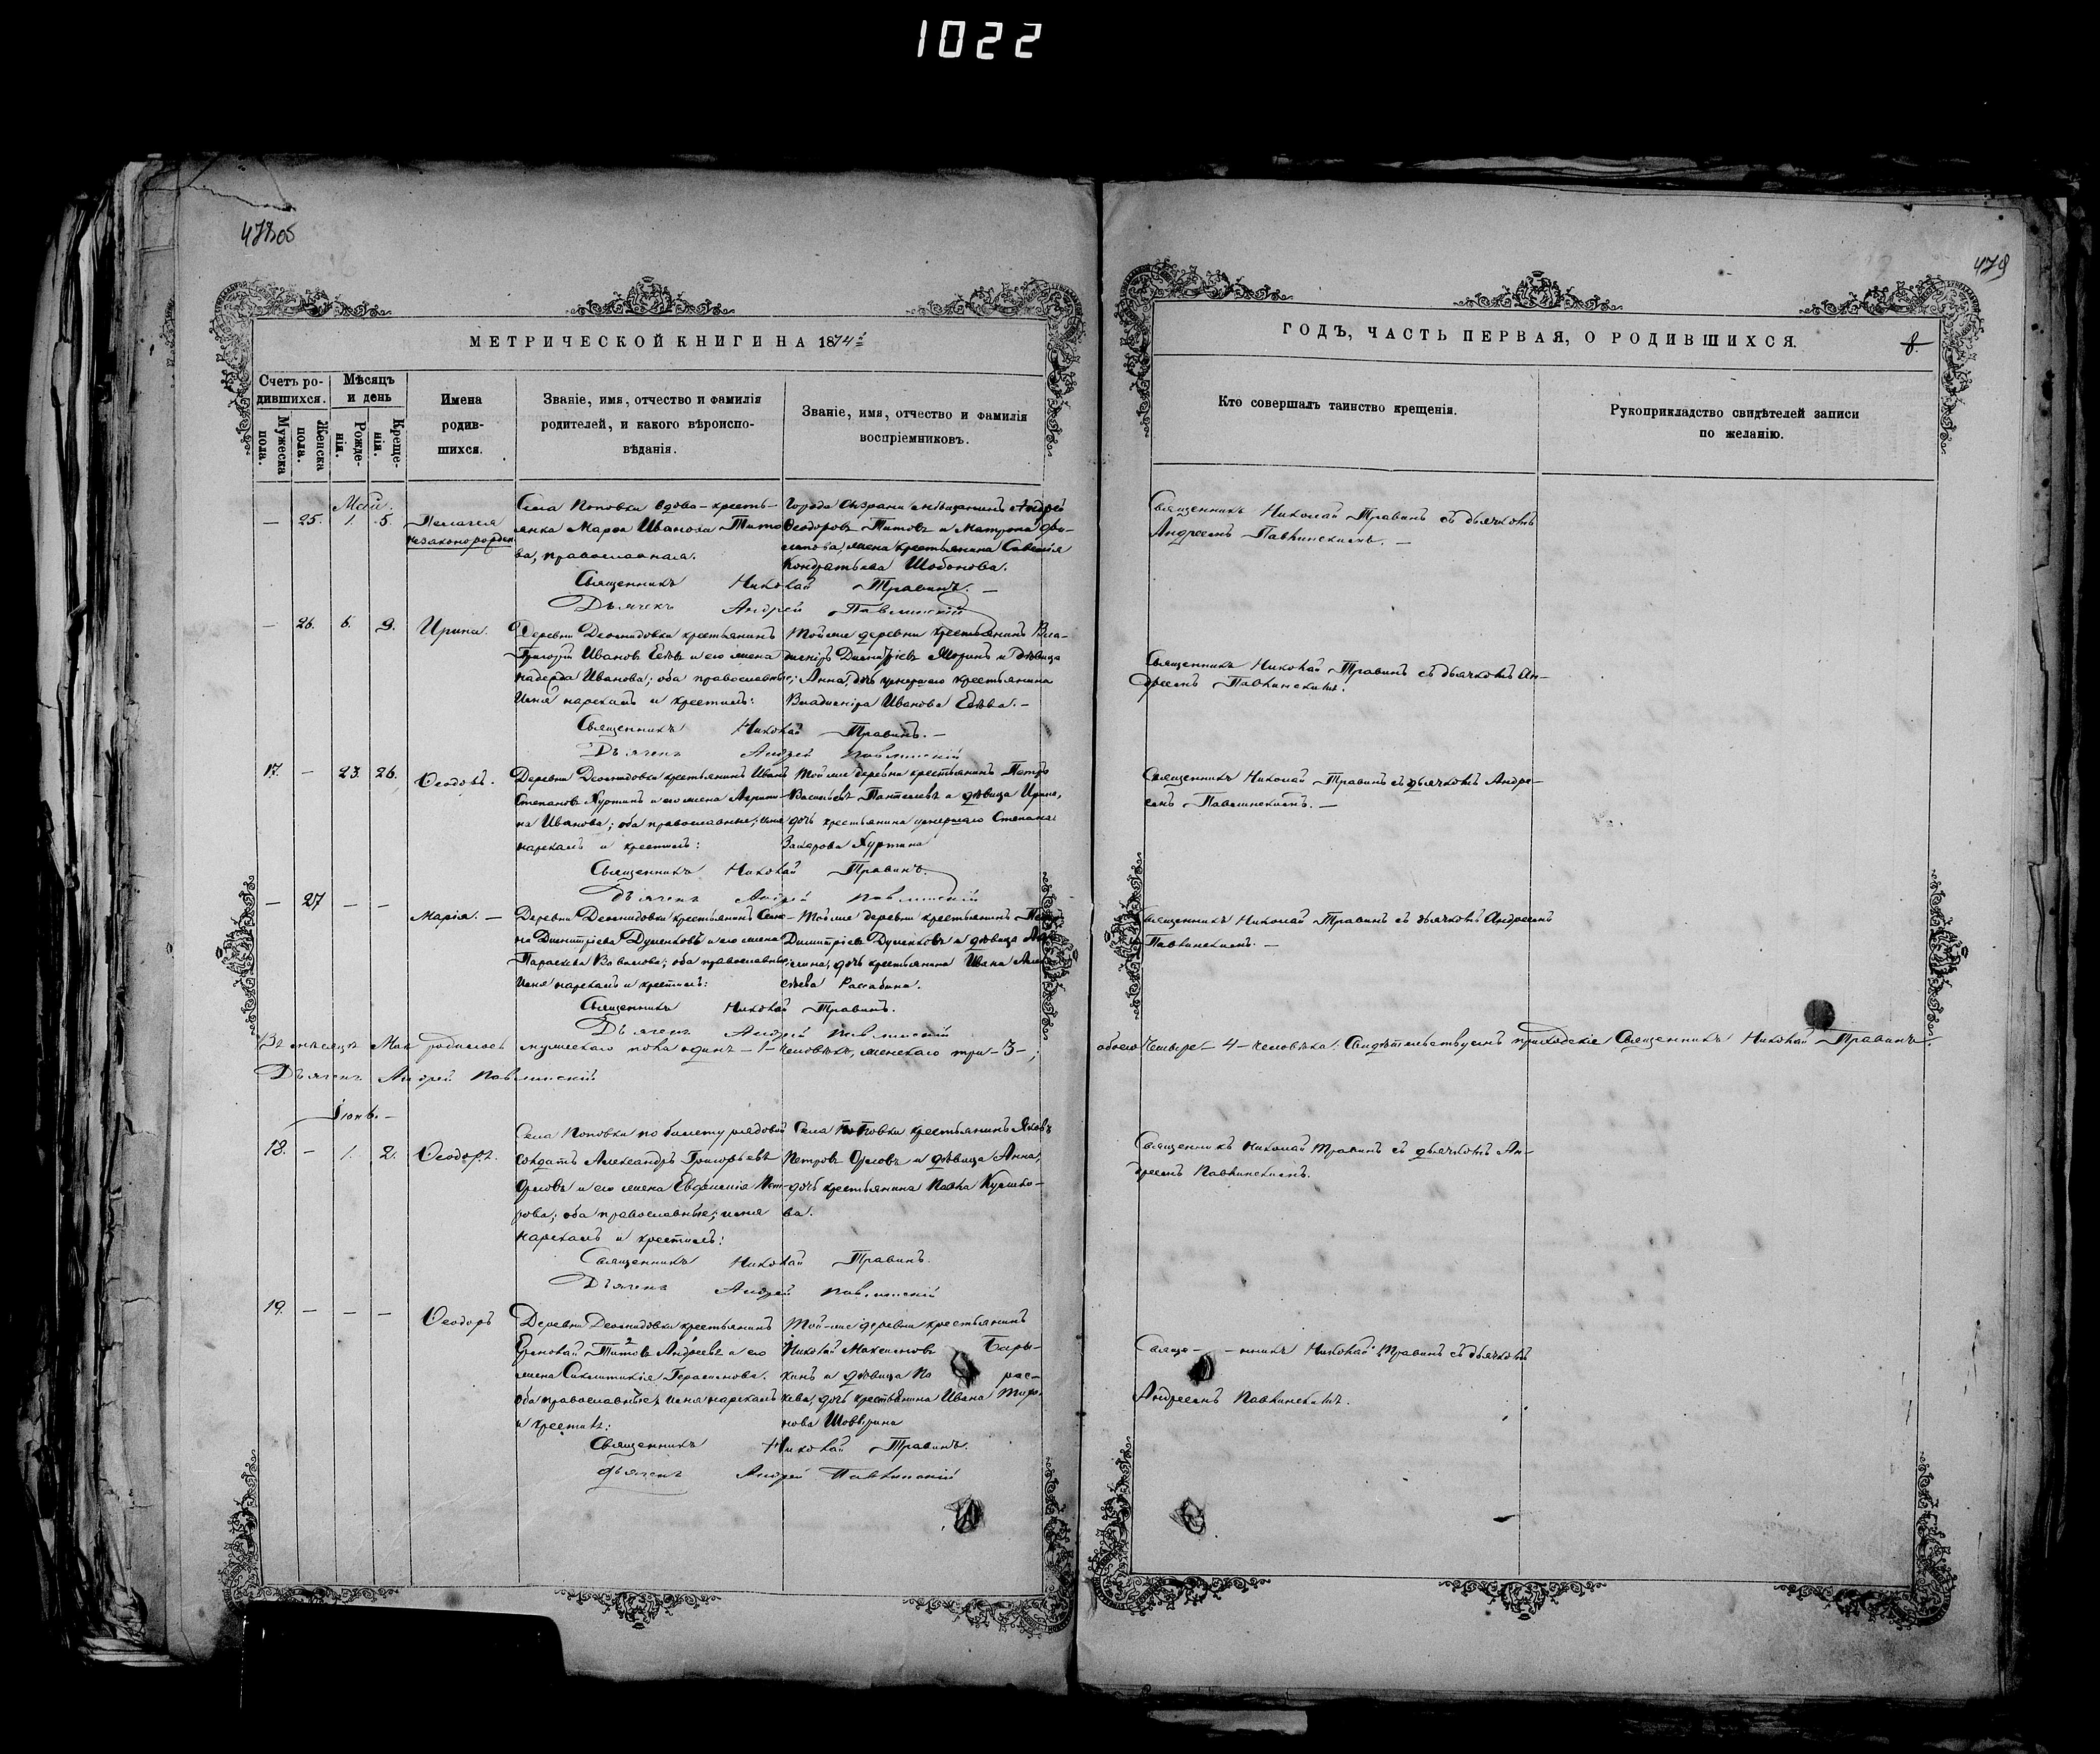 1022
478об
479
МЕТРИЧЕСКОЙ КНИГИ НА 1874й
ГОДЪ, ЧАСТЬ ПЕРВАЯ, О РОДИВШИХСЯ.
8.
Счетъ родившихся.
Мужеска пола.
Женска пола.
Мѣсяцъ и день
Рожденія.
Крещенія.
Имена родившихся.
Званіе, имя, отчество и фамилія
родителей, и какого вѣроиспо-
вѣданія.
Званіе, имя, отчество и фамилія
воспріемниковъ.
Кто совершалъ таинство крещенія.
Рукоприкладство свидѣтелей записи
по желанію.
Май.
— 25. 1. 5. Пелагея
незаконорожден.
Села Поповки вдова-кресть-
янка Марѳа Иванова Тито
ва, православная.
Города Сызрани мѣщанинъ Андрей
Ѳеодоровъ Титовъ и Матрона
жена крестьянина Савелія
Кондратьева Шобонова.
Священникъ Николай Травинъ. —
Дьячекъ Андрей Павлинскій
Священникъ Николай Травинъ съ дьячкомъ
Андреемъ Павлинскимъ. —
— 26. 6. 9. Ирина.
Деревни Деомидовки крестьянинъ
Григорій Ивановъ и его жена
Надежда Иванова; оба православные;
Имя нарекалъ и крестилъ:
Той же деревни крестьянинъ Вла-
диміръ Димитріевъ и дѣвица
Анна, дочь умершаго крестьянина
Владиміра Иванова
Священникъ Николай Травинъ. —
Дьячекъ Андрей Павлинскій
Священникъ Николай Травинъ съ дьячкомъ Ан-
дреемъ Павлинскимъ.
17. — 23. 26. Ѳеодоръ.
Деревни Деомидовки крестьянинъ Иванъ
Степановъ Куртинъ и его жена Агрипи-
на Иванова; оба православные; имя
нарекалъ и крестилъ:
Той же деревни крестьянинъ Петръ
Васильевъ Пантелеевъ и дѣвица Ирина,
дочь крестьянина умершаго Степана
Захарова Куртина
Священникъ Николай Травинъ.
Дьячекъ Андрей Павлинскій
Священникъ Николай Травинъ съ дьячкомъ Андре-
емъ Павлинскимъ. —
— 27 — — Марія. —
Деревни Деомидовки крестьянинъ
Димитріевъ Думенковъ и его жена
Параскева Вавилова; оба православные;
Имя нарекалъ и крестилъ:
Той же деревни крестьянинъ
Димитріевъ Думенковъ и дѣвица
дочь крестьянина Ивана
Священникъ Николай Травинъ.
Дьячекъ Андрей Павлинскій
Священникъ Николай Травинъ съ дьячкомъ Андреемъ
Павлинскимъ. —
Въ мѣсяцѣ Маѣ родилось мужескаго пола одинъ —1— человѣкъ, женскаго три —3—; обоего четыре —4— человѣка. Свидѣтельствуемъ приходскіе Священникъ Николай Травинъ.
Дьячекъ Андрей Павлинскій
Іюнь. —
18. — 1. 2. Ѳеодоръ.
Села Поповки по билету рядовой
солдатъ Александръ Григорьевъ
Орловъ и его жена Евфимія Пет-
рова; оба православные; имя
нарекалъ и крестилъ:
Села Поповки крестьянинъ Яковъ
Петровъ Орловъ и дѣвица Анна,
дочь крестьянина Павла
ва.
Священникъ Николай Травинъ.
Дьячекъ Андрей Павлинскій
Священникъ Николай Травинъ съ дьячкомъ Ан-
дреемъ Павлинскимъ.
19. — — — Ѳеодоръ
Деревни Деомидовки крестьянинъ
Ермолай Титовъ Андреевъ и его
жена Синклитикія Герасимова.
оба православные; имя нарекалъ
и крестилъ:
Той-же деревни крестьянинъ
Николай Максимовъ Бары-
кинъ и дѣвица Па рас-
кева, дочь крестьянина Ивана
Священникъ Николай Травинъ.
Дьячекъ Андрей Павлинскій
Священникъ Николай Травинъ съ дьячкомъ
Андреемъ Павлинскимъ.